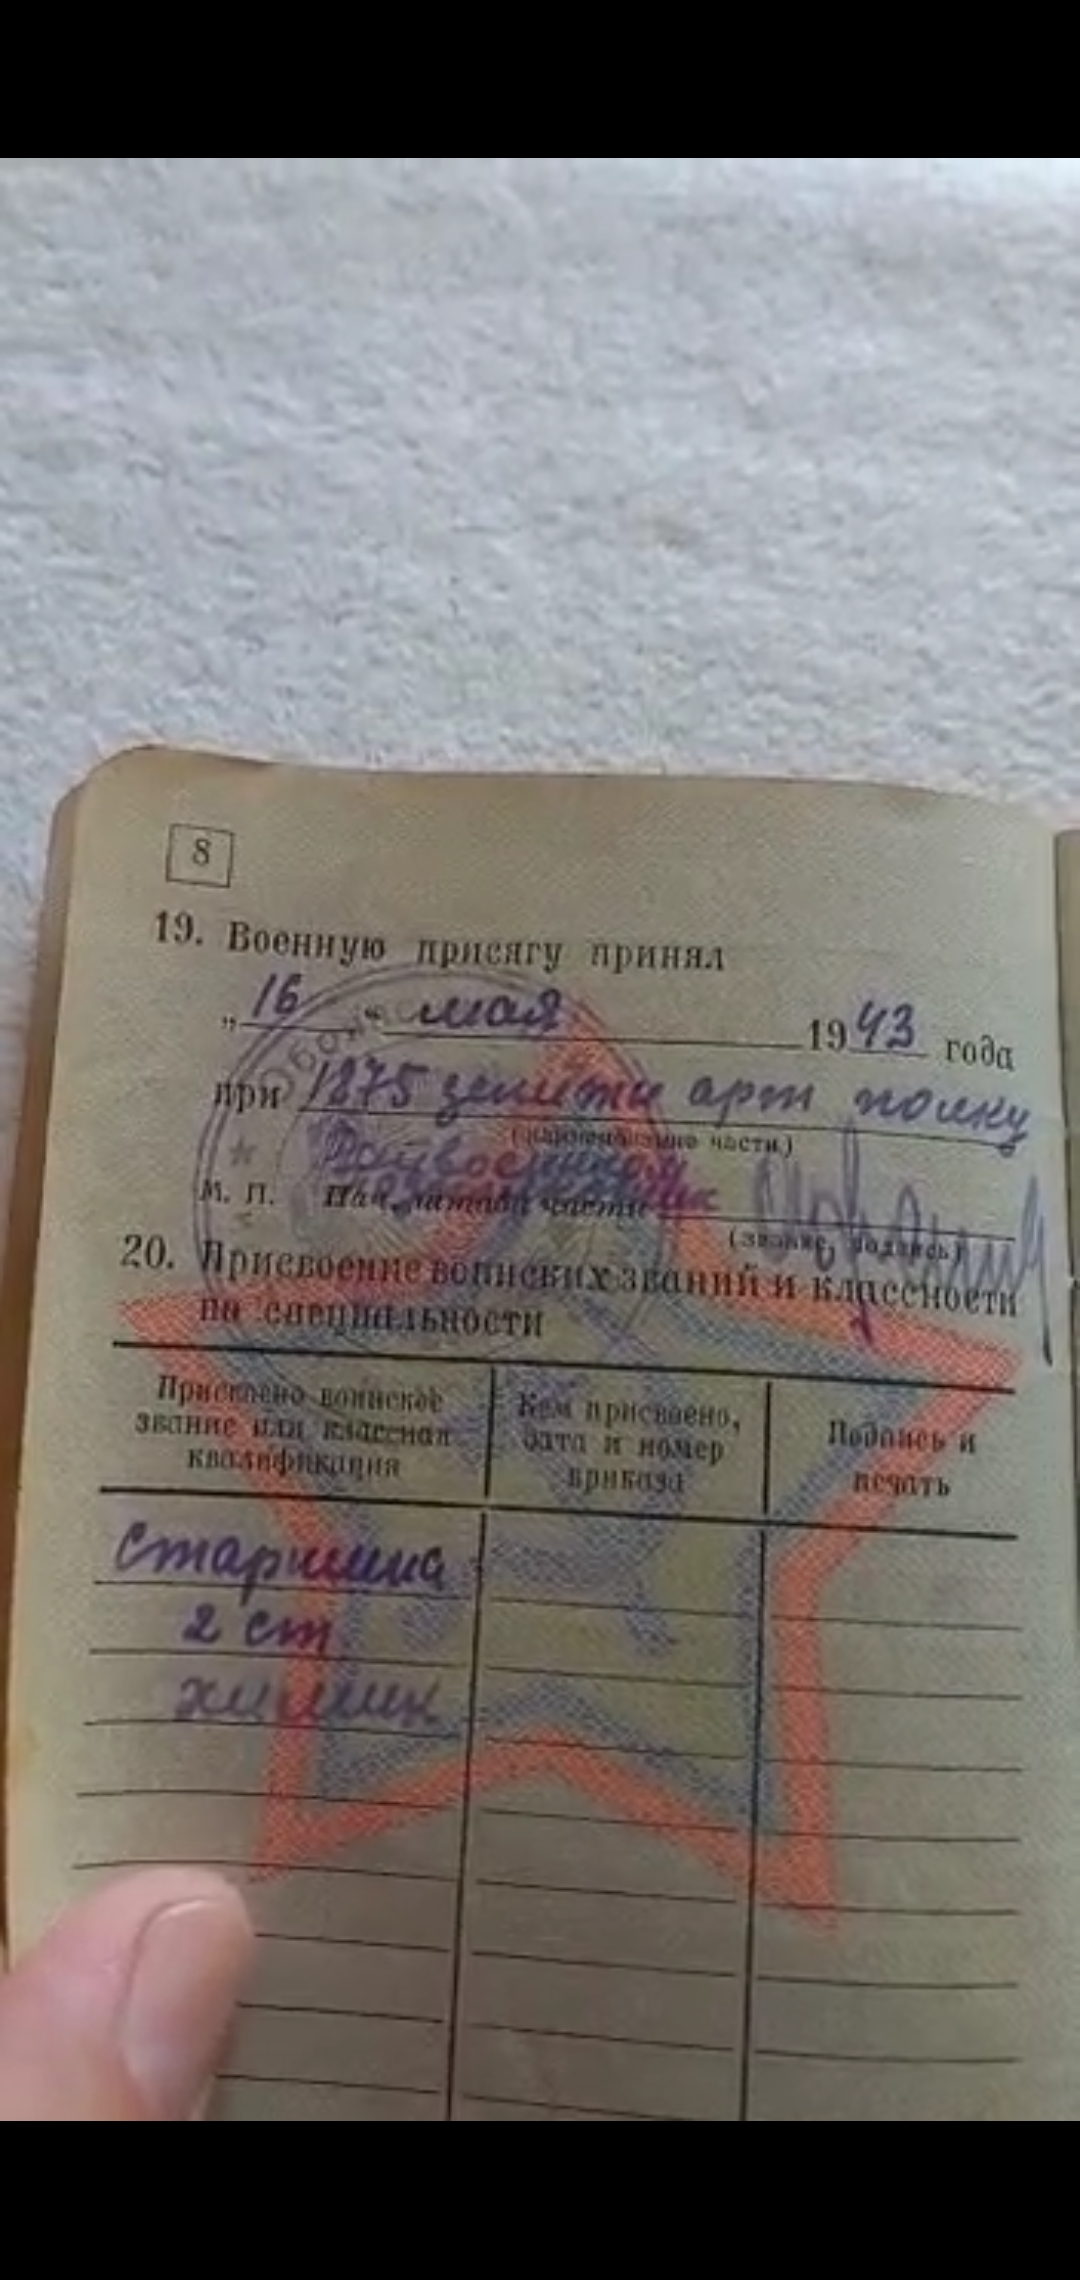 8
19. Военную присягу принял
„ 16 “ мая 1943 года
при 1875 зенитн арт полку
(наименование части)
Райвоенком
М. П. Нач. штаба части
(звание, подпись)
20. Присвоение воинских званий и классности
по специальности
Присвоено воинское
звание или классная
квалификация
Кем присвоено,
дата и номер
приказа
Подпись и
печать
старшина
2 ст
химик